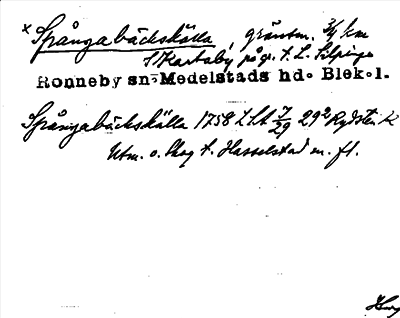 × Spångabäckskälla, gränsm. 3/4 km
S Kartaby på gr. t. L. Silpinge
Ronneby sn- Medelstads hd. Blek.l.
Spångabäckskälla 1758 LSA 7/29 29² Rydsten K
Utm. o. skog t. Hasselstad m. fl.